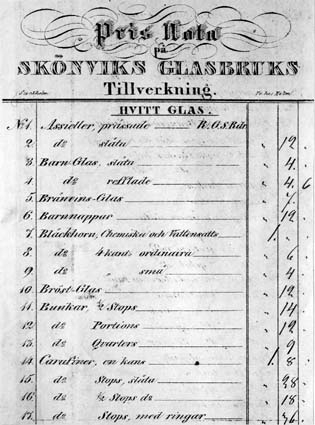 Pris Nota
på
SKÖNVIKS GLASBRUKS
Tillverkning.
HVITT GLAS.
No 1. Assietter, prässade R.G.S. Rdr.
2. do släta " 12.
3. Barn Glas, släta " 4.
4. do refflade " 4. 6
5. Bränvins-Glas " 7.
6. Barnnappar " 12
7. Bläckhorn, Chemiska och Vattensatts 1. "
8. do 4 kant: ordinaira " 6
9. do " små " 4.
10. Bröst-Glas " 12
11. Bunkar, ½ Stops " 14
12. do Portions " 12
13. do Qvarters " 9
14. Caraffiner, en kans 1. 8
15. do Stops, släta " 28
16. do ½ Stops do " 18
17. do Stops, med ringar " 36